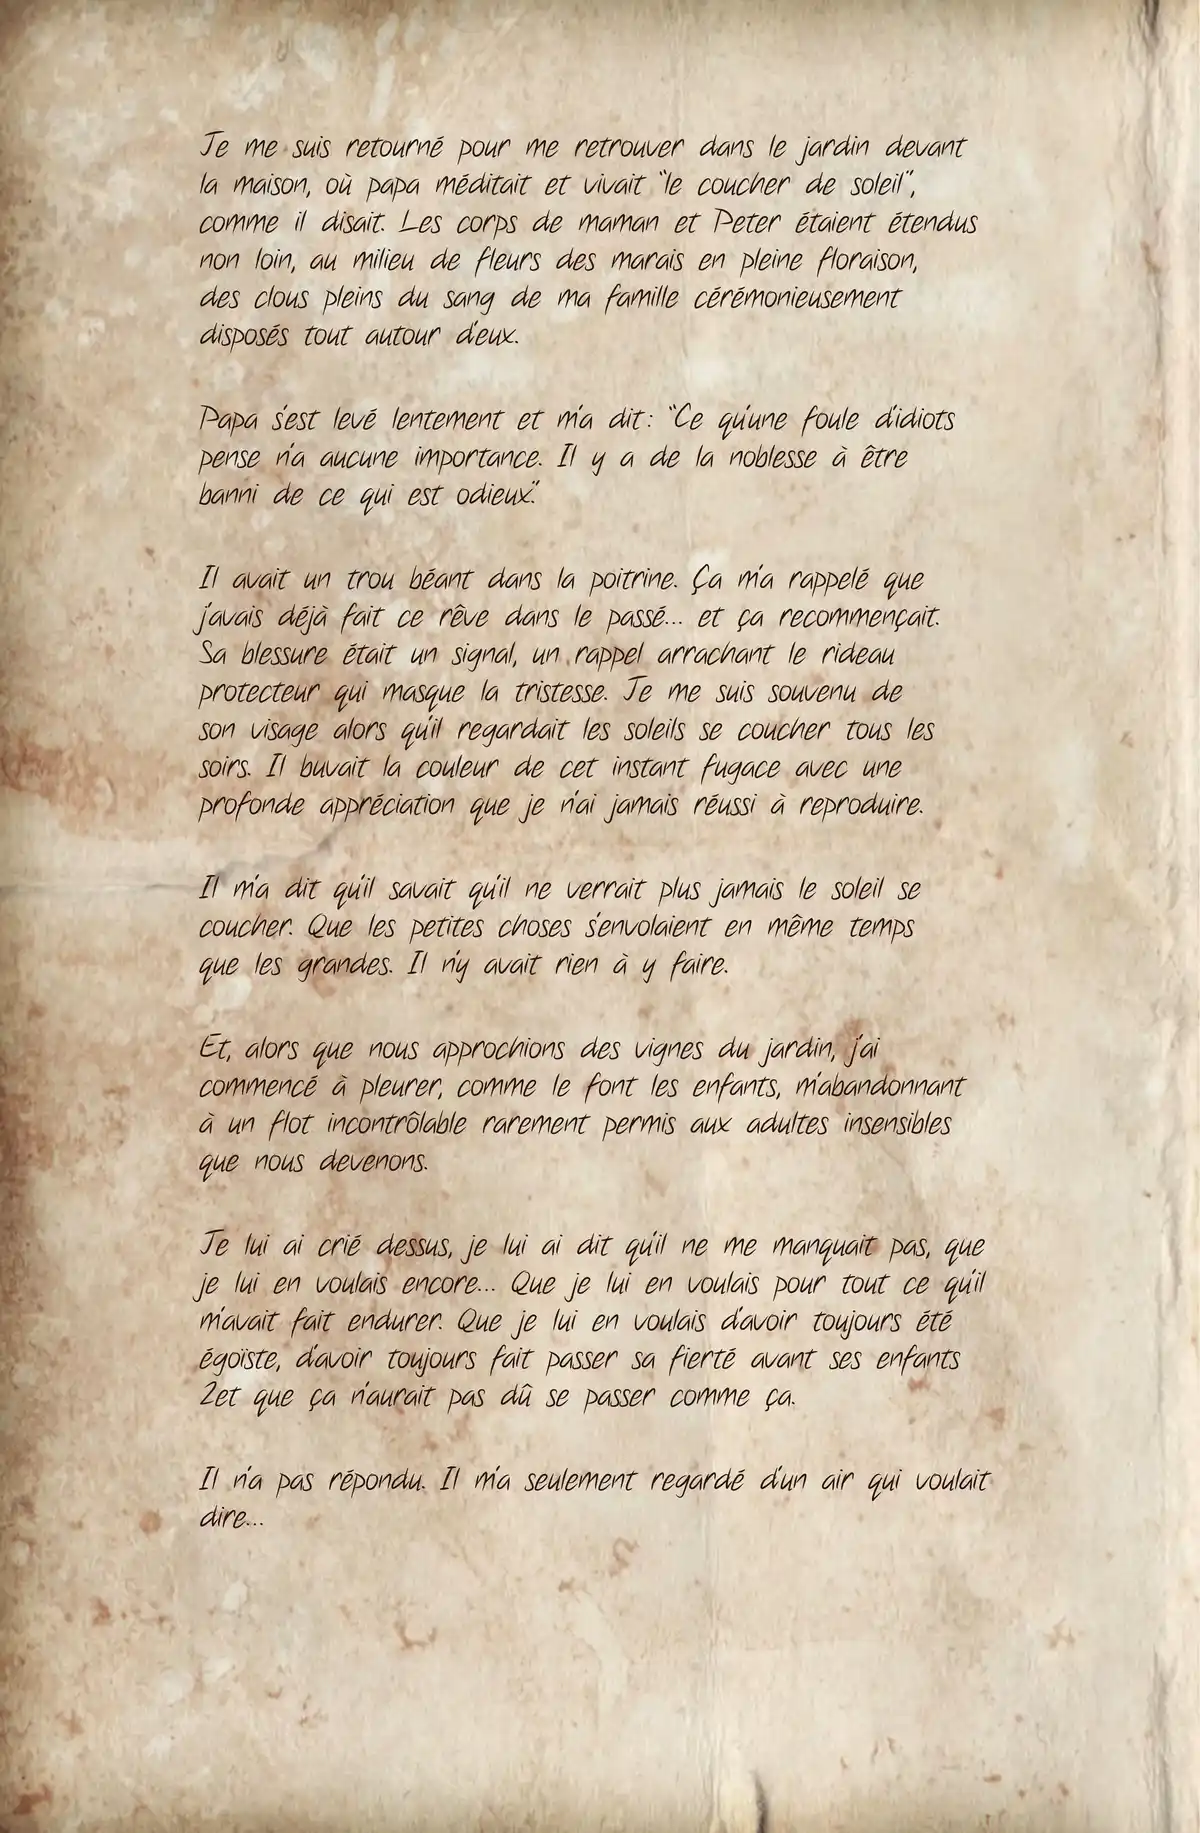 Je me suis retourné pour me retrouver dans le jardin devant
la maison, où papa méditait et vivait "le coucher de soleil",
comme il disait. Les corps de maman et Peter étaient étendus
non loin, au milieu de fleurs des marais en pleine floraison,
des clous pleins du sang de ma famille cérémonieusement
disposés tout autour d'eux.
Papa s'est levé lentement et m'a dit : "Ce qu'une foule d'idiots
pense n'a aucune importance. Il y a de la noblesse à être
banni de ce qui est odieux."
Il avait un trou béant dans la poitrine. Ça m'a rappelé que
j'avais déjà fait ce rêve dans le passé... et ça recommençait.
Sa blessure était un signal, un rappel arrachant le rideau
protecteur qui masque la tristesse. Je me suis souvenu de
son visage alors qu'il regardait les soleils se coucher tous les
soirs. Il buvait la couleur de cet instant fugace avec une
profonde appréciation que je n'ai jamais réussi à reproduire.
Il m'a dit qu'il savait qu'il ne verrait plus jamais le soleil se
coucher. Que les petites choses s'envolaient en même temps
que les grandes. Il n'y avait rien à y faire.
Et, alors que nous approchions des vignes du jardin, j'ai
commencé à pleurer, comme le font les enfants, m'abandonnant
à un flot incontrôlable rarement permis aux adultes insensibles
que nous devenons.
Je lui ai crié dessus, je lui ai dit qu'il ne me manquait pas, que
je lui en voulais encore... Que je lui en voulais pour tout ce qu'il
m'avait fait endurer. Que je lui en voulais d'avoir toujours été
égoïste, d'avoir toujours fait passer sa fierté avant ses enfants
2et que ça n'aurait pas dû se passer comme ça.
Il n'a pas répondu. Il m'a seulement regardé d'un air qui voulait
dire...